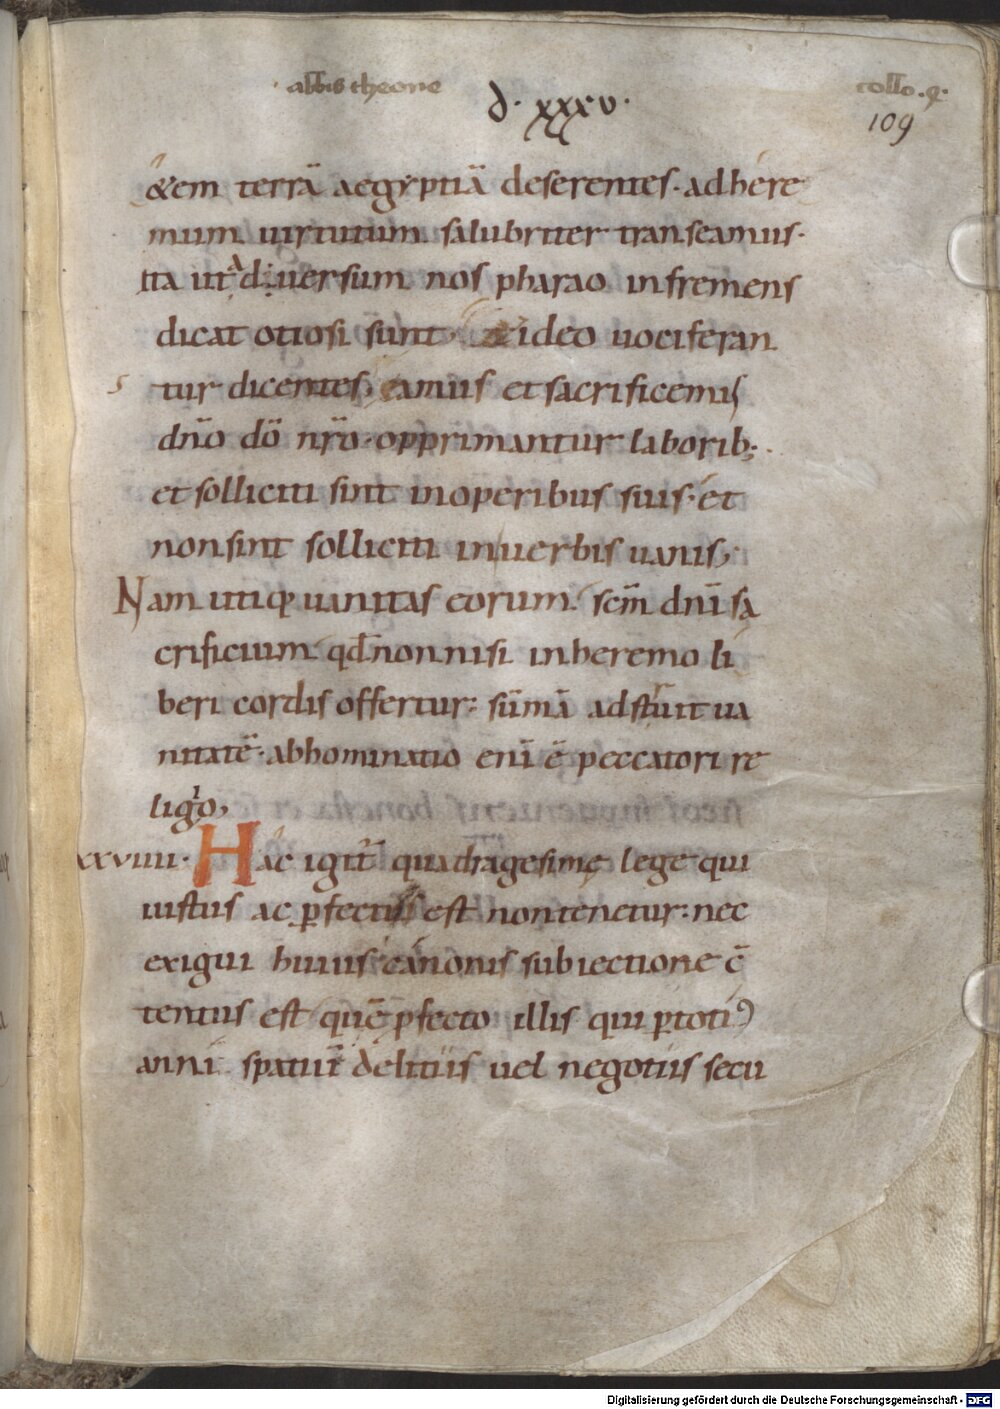 abb̅is theone
collo. q.
d. xxxv.
109
&em terrā aegyptiā deserentes. ad here
mum uirtutum salubriter transeamus.
ita ut aduersum nos pharao infremens
dicat otiosi sunt & ideo uociferan
tur dicentes, eamus et sacrificemus
dn̄o dō nr̄o. opprimantur laborib;.
et solliciti sint in operibus suis. et
non sint solliciti in uerbis uanis,
Nam utiq; uanitas eorum. scm̄ dn̄i sa
crificium qd̄ non nisi in heremo li
beri cordis offertur: sūmā adstruit ua
nitatē. abhominatio enī ē peccatori re
ligio,
xxviiii. Hac igit̄ quadragesimę lege qui
iustus ac ꝑfectus est non tenetur: nec
exigui huius cánonis subiectione c̄
tentus est quē ꝓfecto illis qui ꝑ totiꝰ
anni spatiū delitiis uel negotiis secu
Digitalisierung gefördert durch die Deutsche Forschungsgemeinschaft - DFG